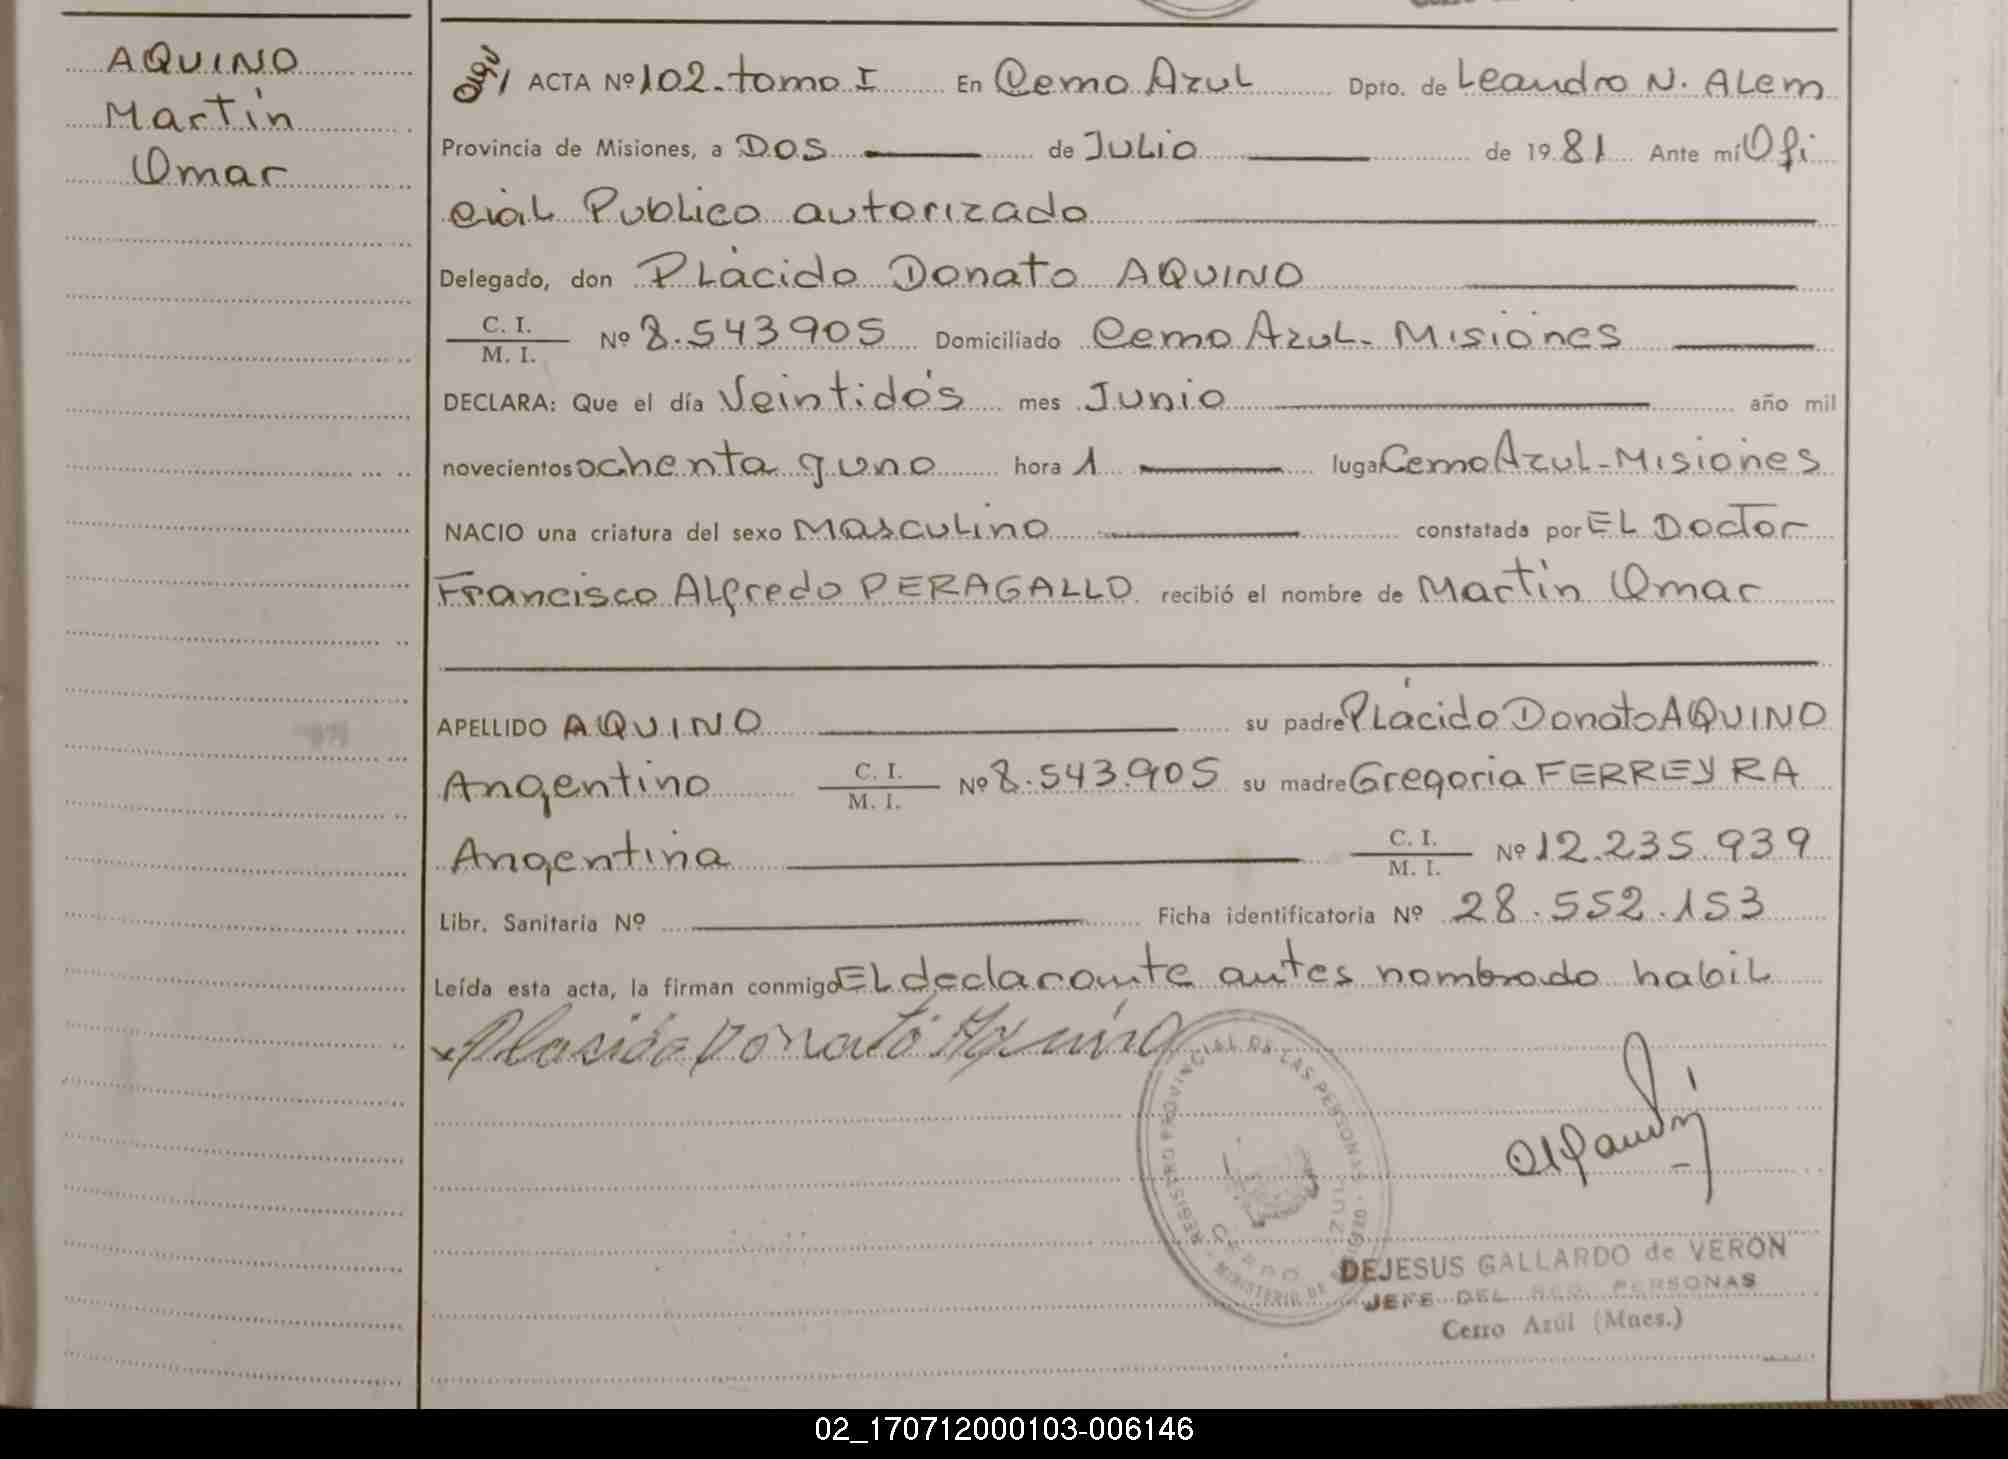 AQUINO
Martín
Omar
ACTA Nº 102. tomo I En Cerro Azul Dpto. de Leandro N. Alem
Provincia de Misiones, a Dos de Julio de 1981 Ante mí Ofi
cial Publico autorizado
Delegado, don Plácido Donato AQUINO
C. I.
M. I. Nº 8.543.905 Domiciliado Cerro Azul - Misiones
DECLARA: Que el día Veintidós mes Junio año mil
novecientos ochenta y uno hora 1 lugar Cerro Azul - Misiones
NACIO una criatura del sexo Masculino constatada por El Doctor
Francisco Alfredo PERAGALLO recibió el nombre de Martín Omar
APELLIDO AQUINO su padre Plácido Donato AQUINO
Argentino C. I.
M. I. Nº 8.543.905 su madre Gregoria FERREYRA
Argentina C. I.
M. I. Nº 12.235.939
Libr. Sanitaria Nº Ficha identificatoria Nº 28.552.153
Leída esta acta, la firman conmigo El declarante antes nombrado habil
Plasido Donato Aquino
REGISTRO PROVINCIAL DE LAS PERSONAS
CERRO AZUL
MINISTERIO DE
DEJESUS GALLARDO de VERON
JEFE DEL REG. PERSONAS
Cerro Azúl (Mnes.)
02_170712000103-006146